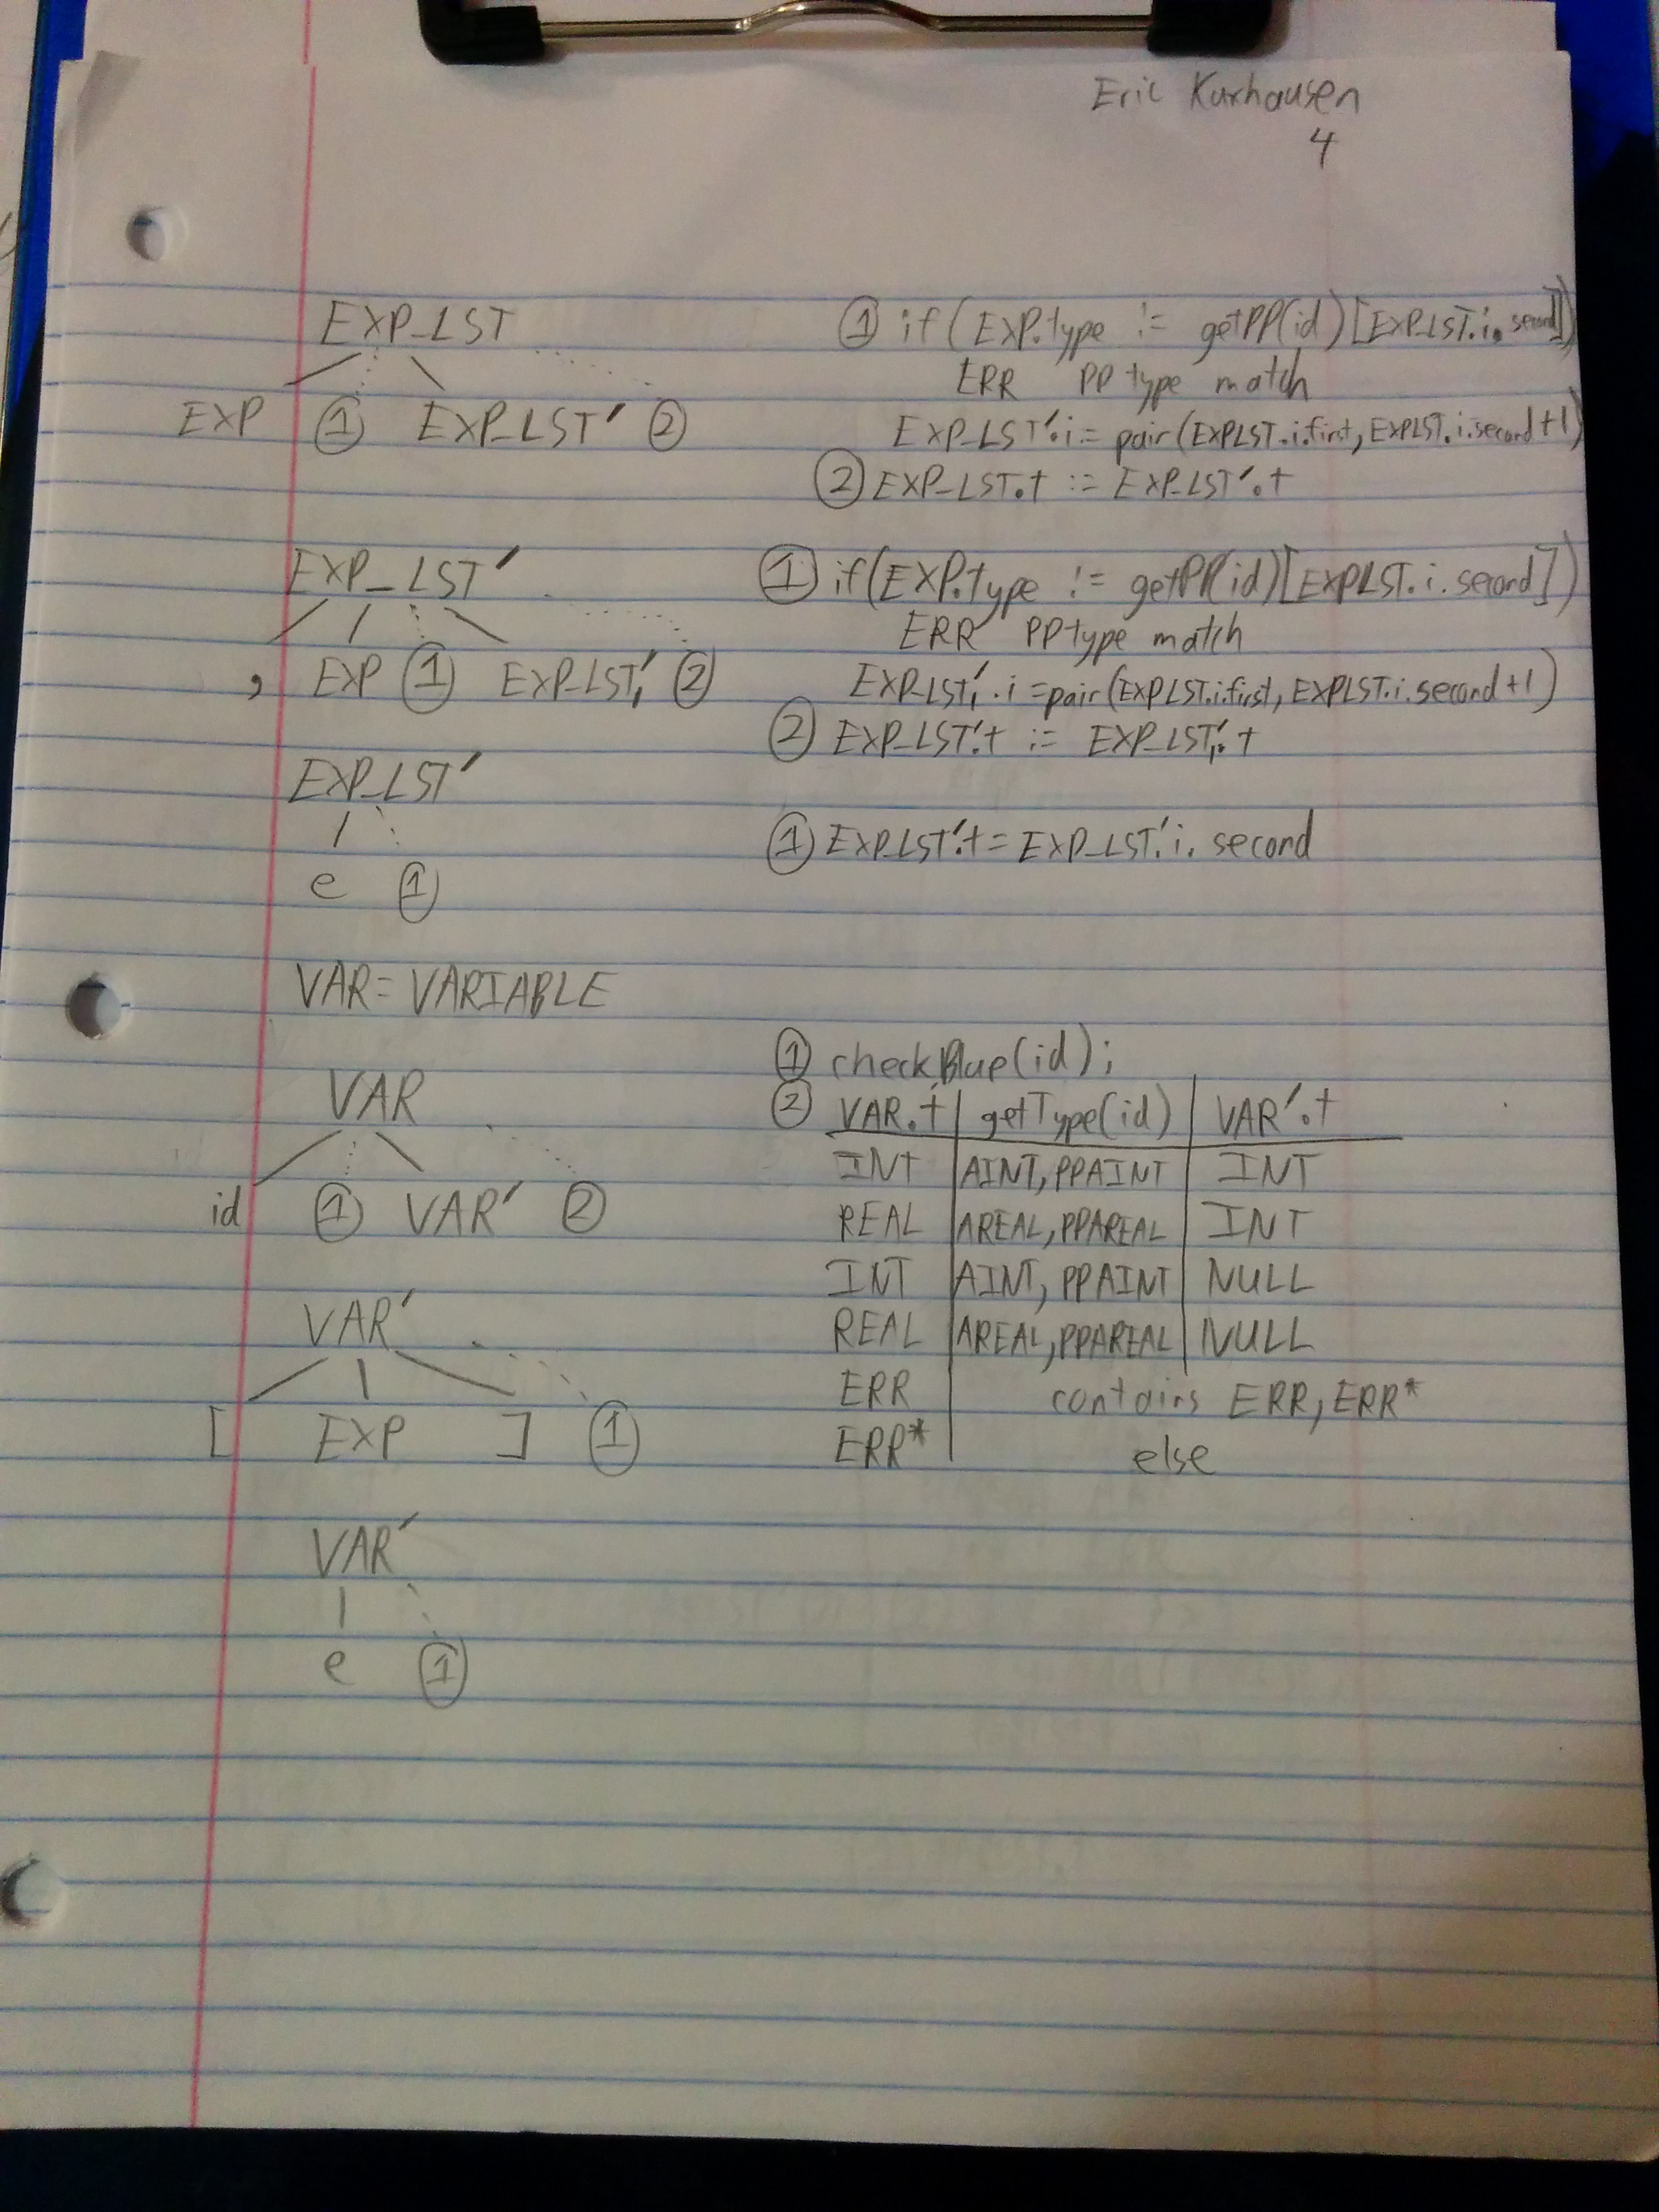 Eric Kuxhausen
4
EXP_LST
EXP ① EXP_LST' ②
① if(EXP.type != getPP(id)[EXP_LST.i.second])
ERR PP type match
EXP_LST'.i= pair(EXPLST.i.first, EXPLST.i.second+1)
② EXP_LST.t := EXP_LST'.t
EXP_LST'
, EXP ① EXP_LST'₁ ②
① if(EXP.type != getPP(id)[EXPLST.i.second])
ERR PP type match
EXP_LST'₁.i =pair(EXPLST.i.first, EXPLST.i.second+1)
② EXP_LST'.t := EXP_LST'₁.t
EXP_LST'
e ①
① EXP_LST'.t= EXP_LST'.i.second
VAR= VARIABLE
VAR
id ① VAR' ②
① checkBlue(id);
② VAR.t getType(id) VAR'.t
INT AINT, PPAINT INT
REAL AREAL, PPAREAL INT
INT AINT, PPAINT NULL
REAL AREAL, PPAREAL NULL
ERR contains ERR, ERR*
ERR* else
VAR'
[ EXP ] ①
VAR'
e ①